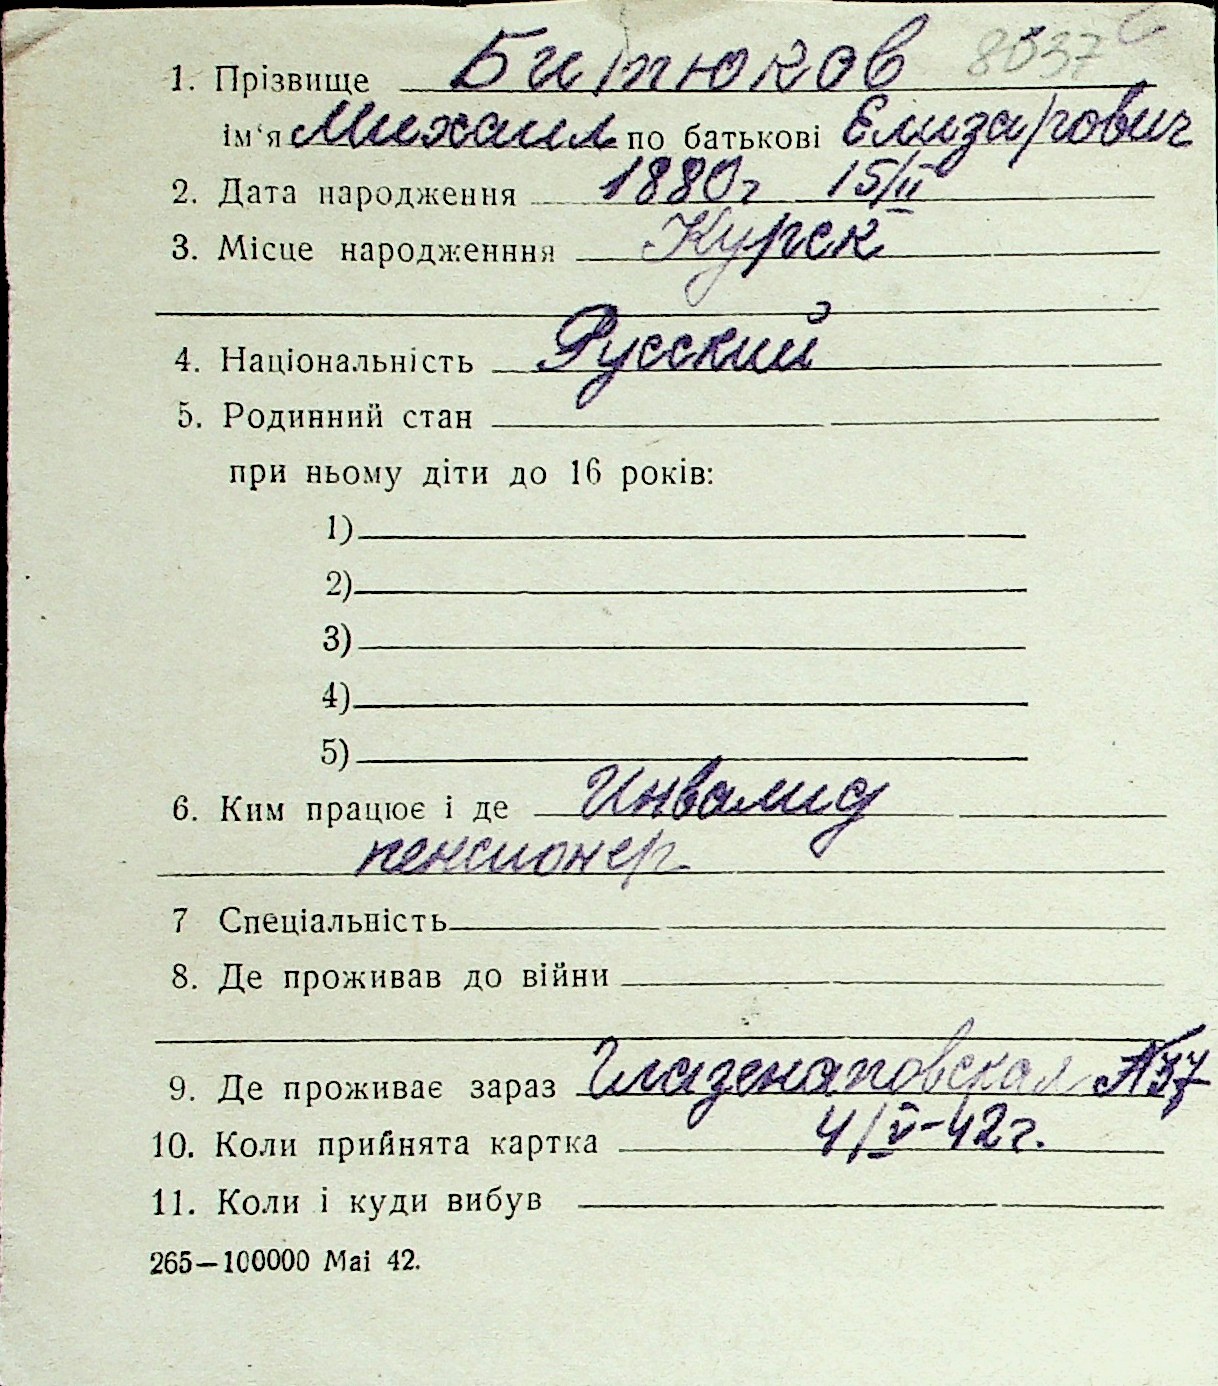 1. Прізвище Битюков 8037
ім‘я Михаил по батькові Елизарович
2. Дата народження 1880г 15/II
3. Місце народженння Курск
4. Національність Русский
5. Родинний стан
при ньому діти до 16 років:
1)
2)
3)
4)
5)
6. Ким працює і де Инвалид
пенсионер
7 Спеціальність
8. Де проживав до війни
9. Де проживає зараз Глазенаповская №37
10. Коли прийнята картка 4/V-42г.
11. Коли і куди вибув
265—100000 Mai 42.